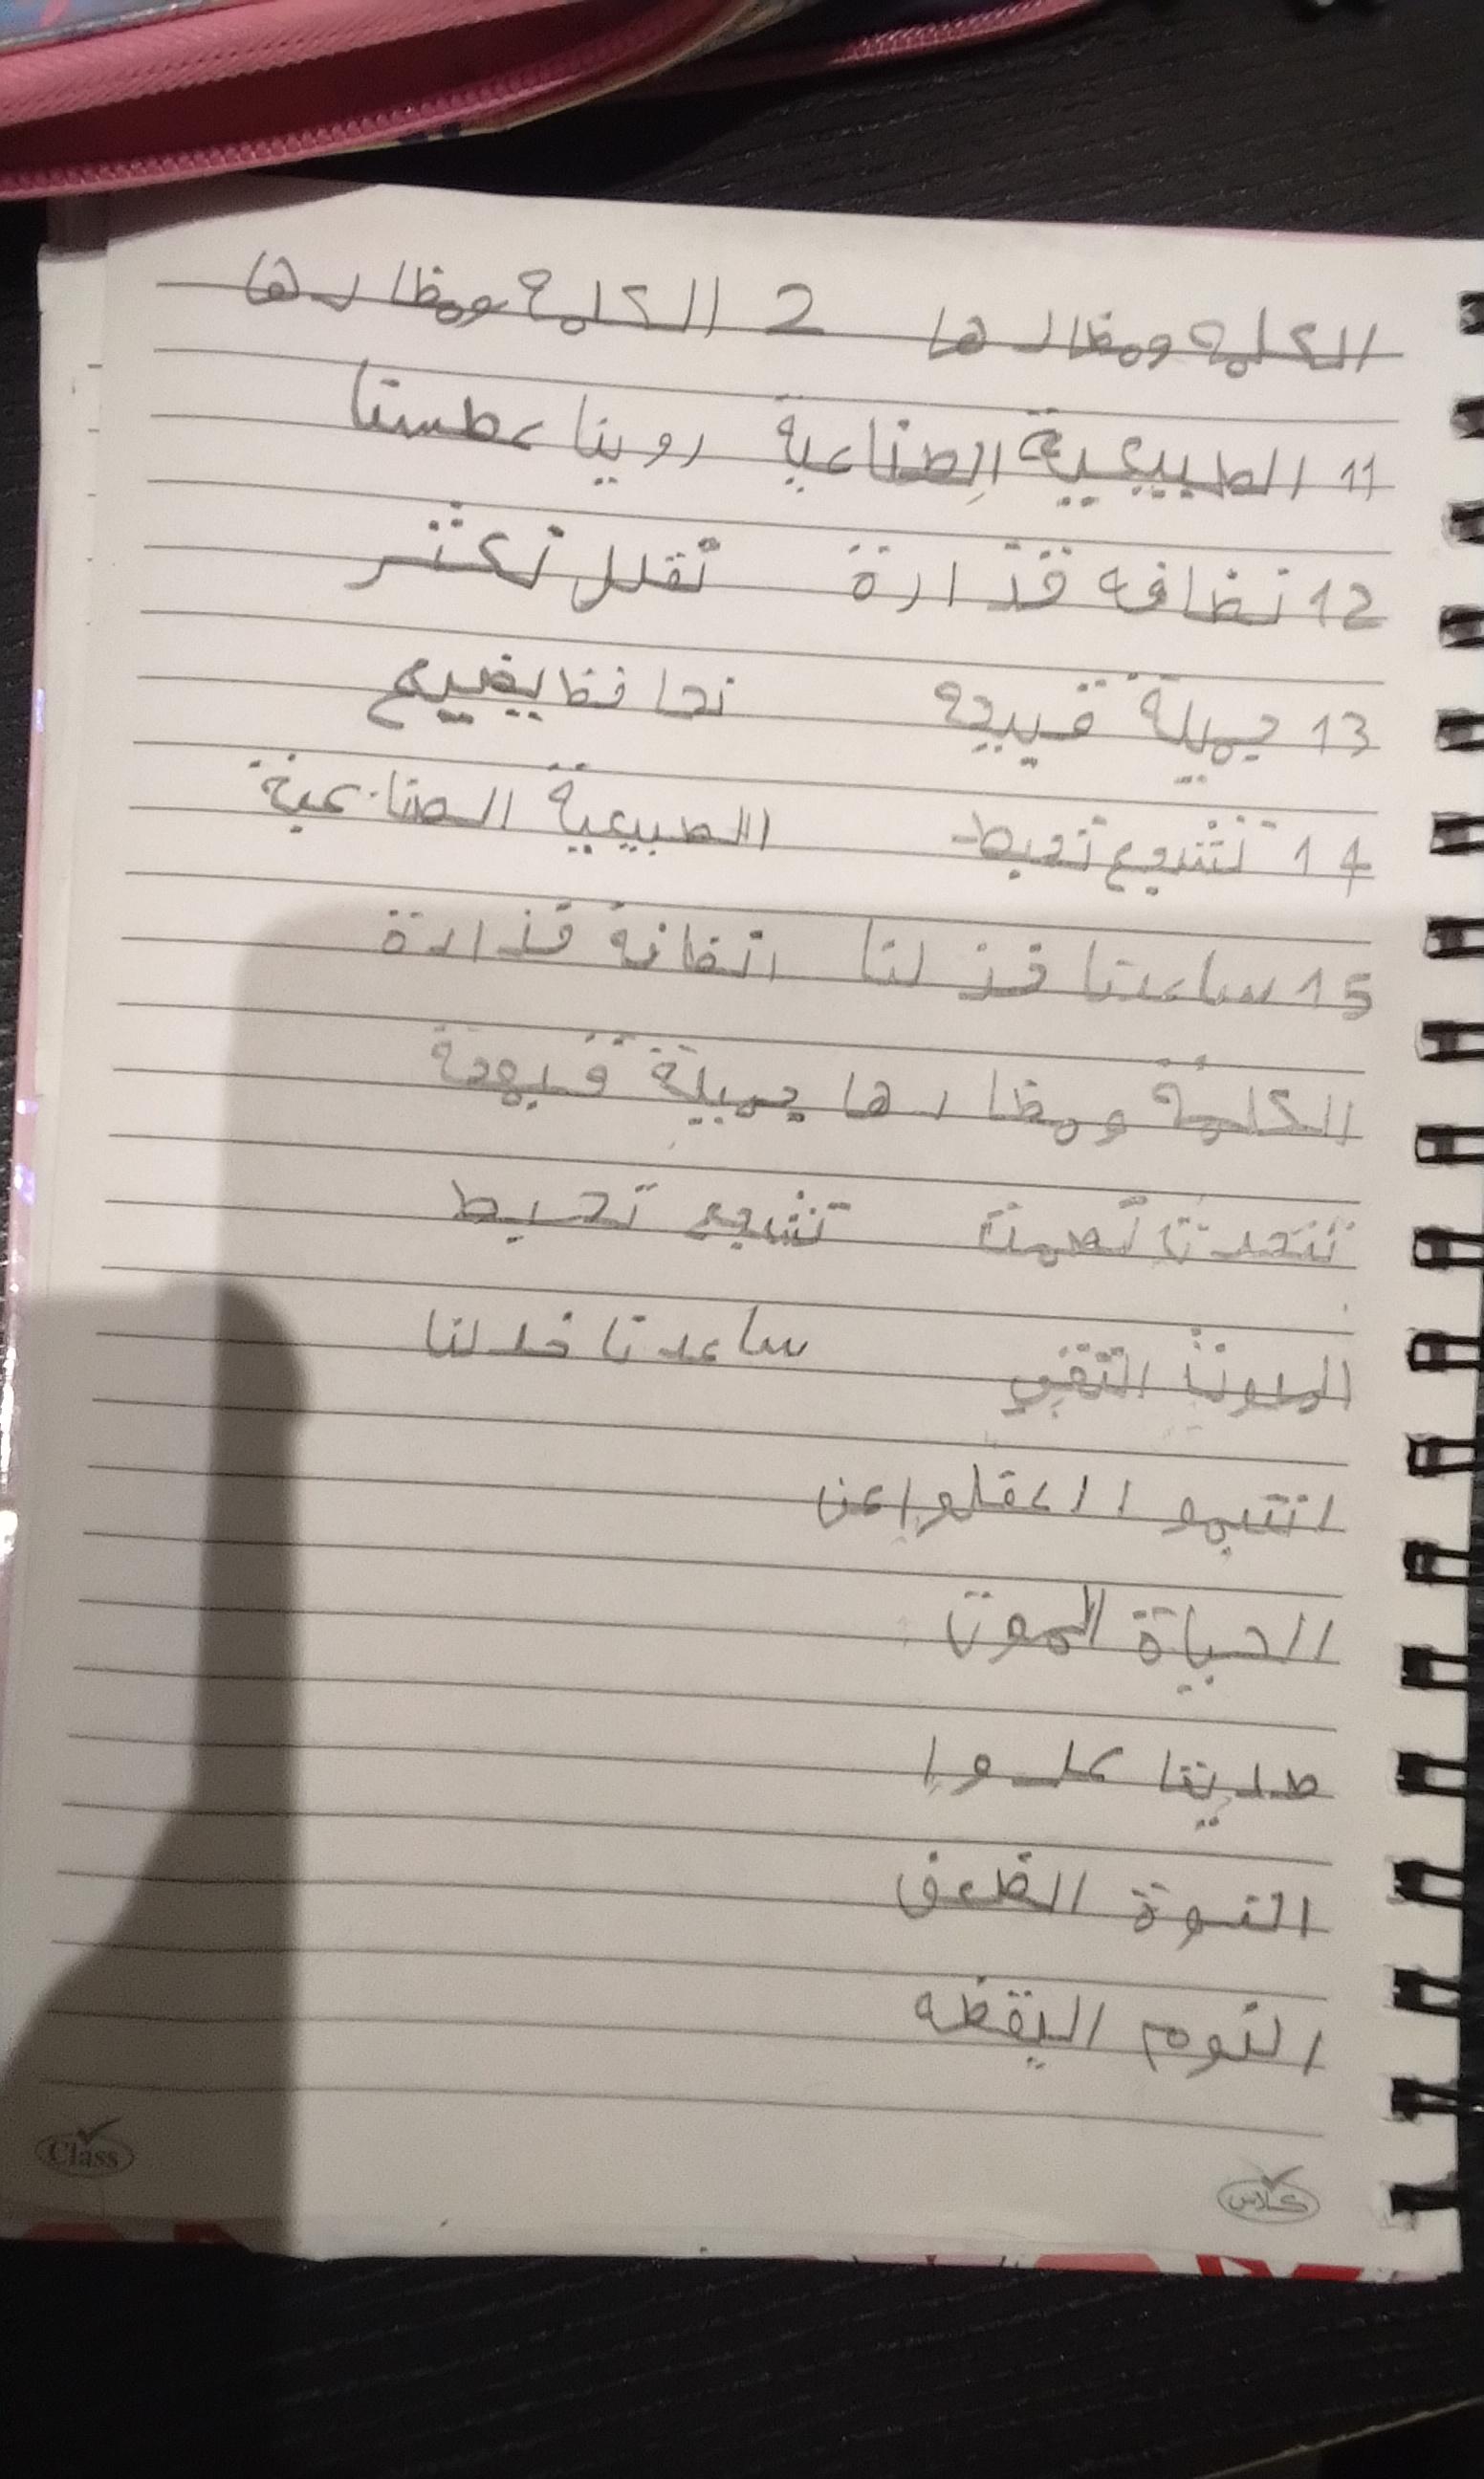 الكلمه ومظارها 2 الكلمة ومظارها
11 الطبيعية الصناعية روينا عطستنا
12 نظافه قذارة نقلل نكثر
13 جميلة قبيحه نحافظ يضيع
14 نشجع نحبط الطبيعية الصناعية
15 ساعدنا خذلنا انضافه قذارة
الكلمة ومظارها جميلة قبيحة
نتحدث نصمت تشجع تحبط
الملوث النقي ساعدنا خدلنا
انتبهوا اعقلوا عن
الحياة الموت
صديقا عدوا
القوة الظعف
النوم اليقظه
Class
كلاس